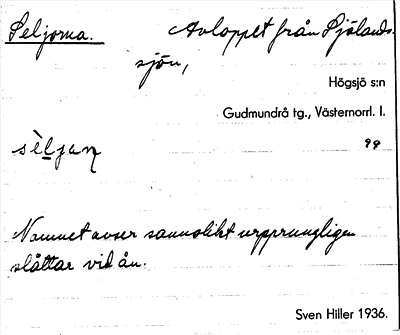 Seljorna. Avloppet från Sjölands-
sjön,
Högsjö s:n
Gudmundrå tg., Västernorrl. l.
sèljan 99
Namnet avser sannolikt ursprungligen
slåttar vid ån.
Sven Hiller 1936.